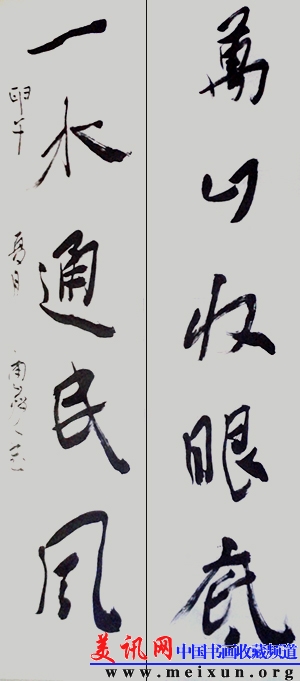 萬山收眼底
一水通民风
夏月
美讯网
中国书画收藏频道
www.meixun.org